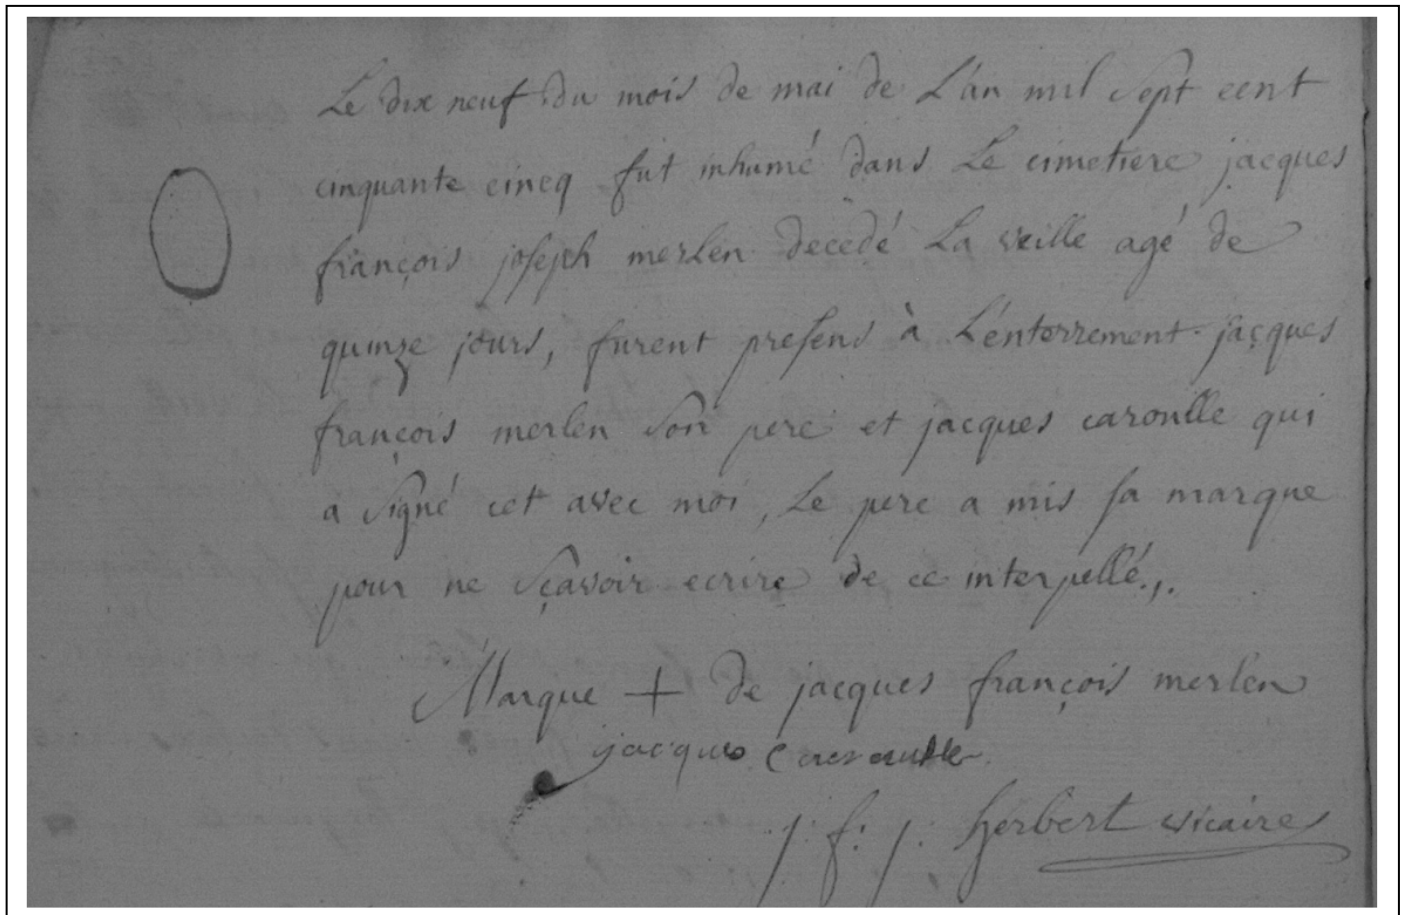 Le dix neuf du mois de mai de L'an mil Sept cent
cinquante cincq fut inhumé dans Le cimetiere jacques
françois joseph merlen decedé La veille agé de
quinze jours, furent presens à L'énterrement jacques
françois merlen Son pere et jacques caroulle qui
a Signé cet avec moi, Le pere a mis sa marque
pour ne Sçavoir ecrire de ce interpellé.,.
Marque + de jacques françois merlen
jacques
j: f: j: herbert vicaire